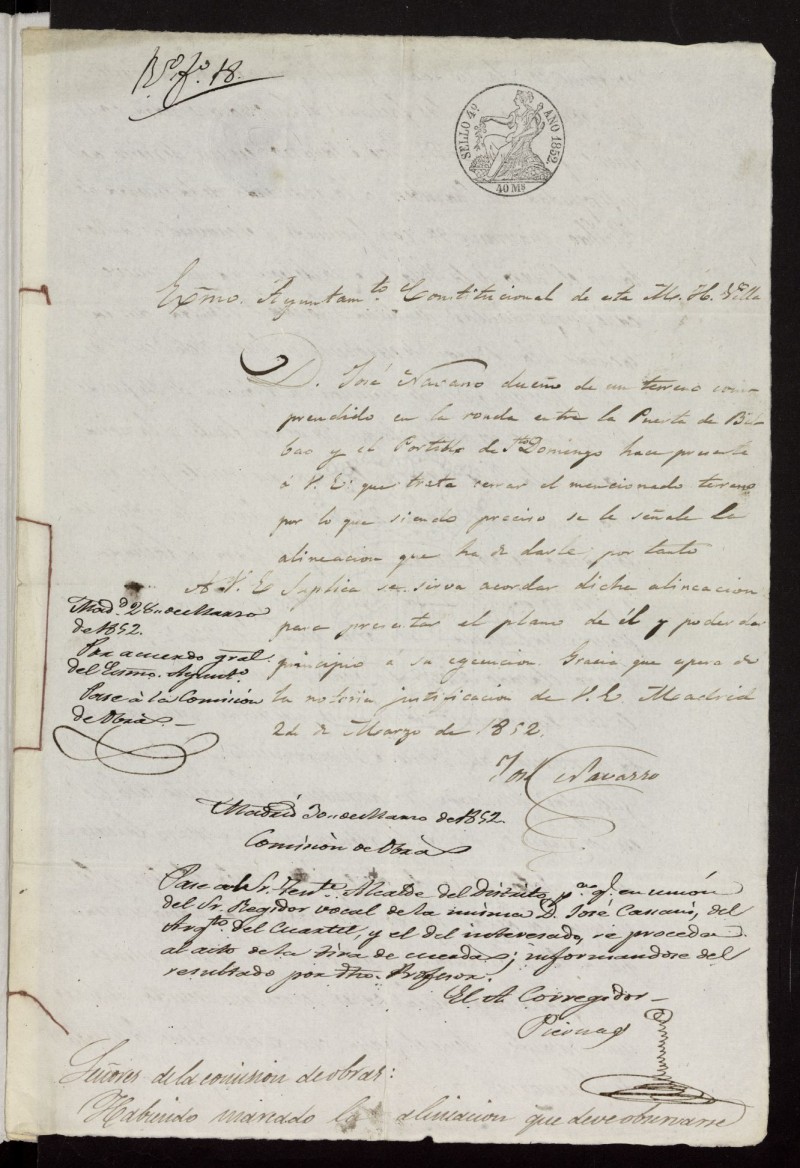 Rº fº 18.
SELLO 4º AÑO 1852.
40 Ms
Exmo. Ayuntamto Constitucional de esta M. H. Villa
D. José Navarro dueño de un terreno com-
prendido en la ronda entre la Puerta de Bil-
bao y el Portillo de Sto Domingo hace presente
á V.E. que trata cerrar el mencionado terreno
por lo que siendo preciso se le señale la
alineacion que ha de darle; por tanto
A V.E. Suplica se sirva acordar dicha alineacion
para presentar el plano de él y poder dar
principio a su egecucion. Gracia que espera de
la notoria justificacion de V.E. Madrid
24 de Marzo de 1852.
José Navarro
Madd 28,, de Marzo
de 1852.
Por acuerdo gral
del Exmo. Ayunto
Pase à la Comision
de Obras.
Madrid 30,, de Marzo de 1852.
Comision de Obras
Pase al Sr. Tente Alcalde del Distrito, pa q. en union
del Sr. Regidor vocal de la misma D. José Cassani, del
Arqto del Cuartel, y el del interesado, se proceda
al acto de la tira de cuerdas; informandose del
resultado por dho. Profesor.
El A. Corregidor
Piernas
Señores de la comision de obras:
Habiendo marcado la alineacion que deve observarse